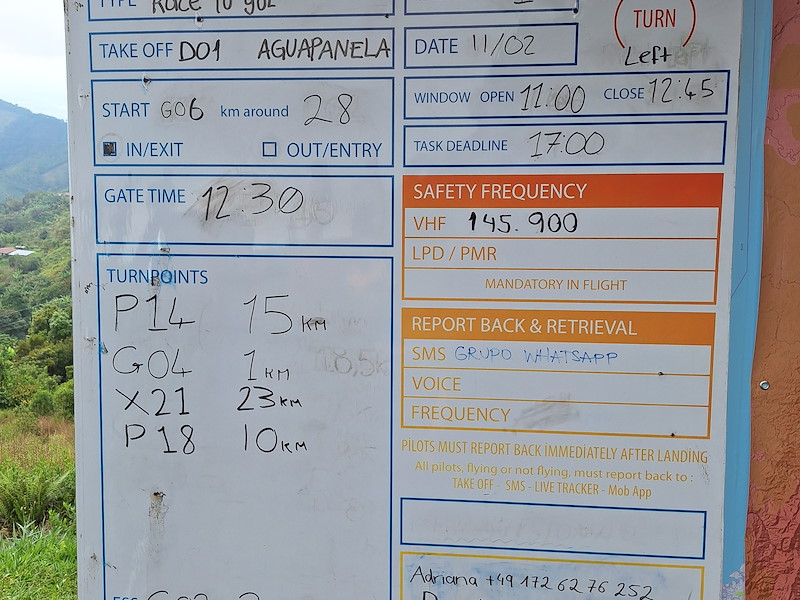 TYPE Race to goal
TAKE OFF D01 AGUAPANELA
DATE 11/02
TURN
Left
START G06 km around 28
IN/EXIT OUT/ENTRY
WINDOW OPEN 11:00 CLOSE 12:45
TASK DEADLINE 17:00
GATE TIME 12:30
SAFETY FREQUENCY
VHF 145.900
LPD / PMR
MANDATORY IN FLIGHT
TURNPOINTS
P14 15 KM
G04 1 KM
X21 23 KM
P18 10 KM
REPORT BACK & RETRIEVAL
SMS GRUPO WHATSAPP
VOICE
FREQUENCY
PILOTS MUST REPORT BACK IMMEDIATELY AFTER LANDING
All pilots, flying or not flying, must report back to :
TAKE OFF - SMS - LIVE TRACKER - Mob App
Adriana +49 172 62 76 252